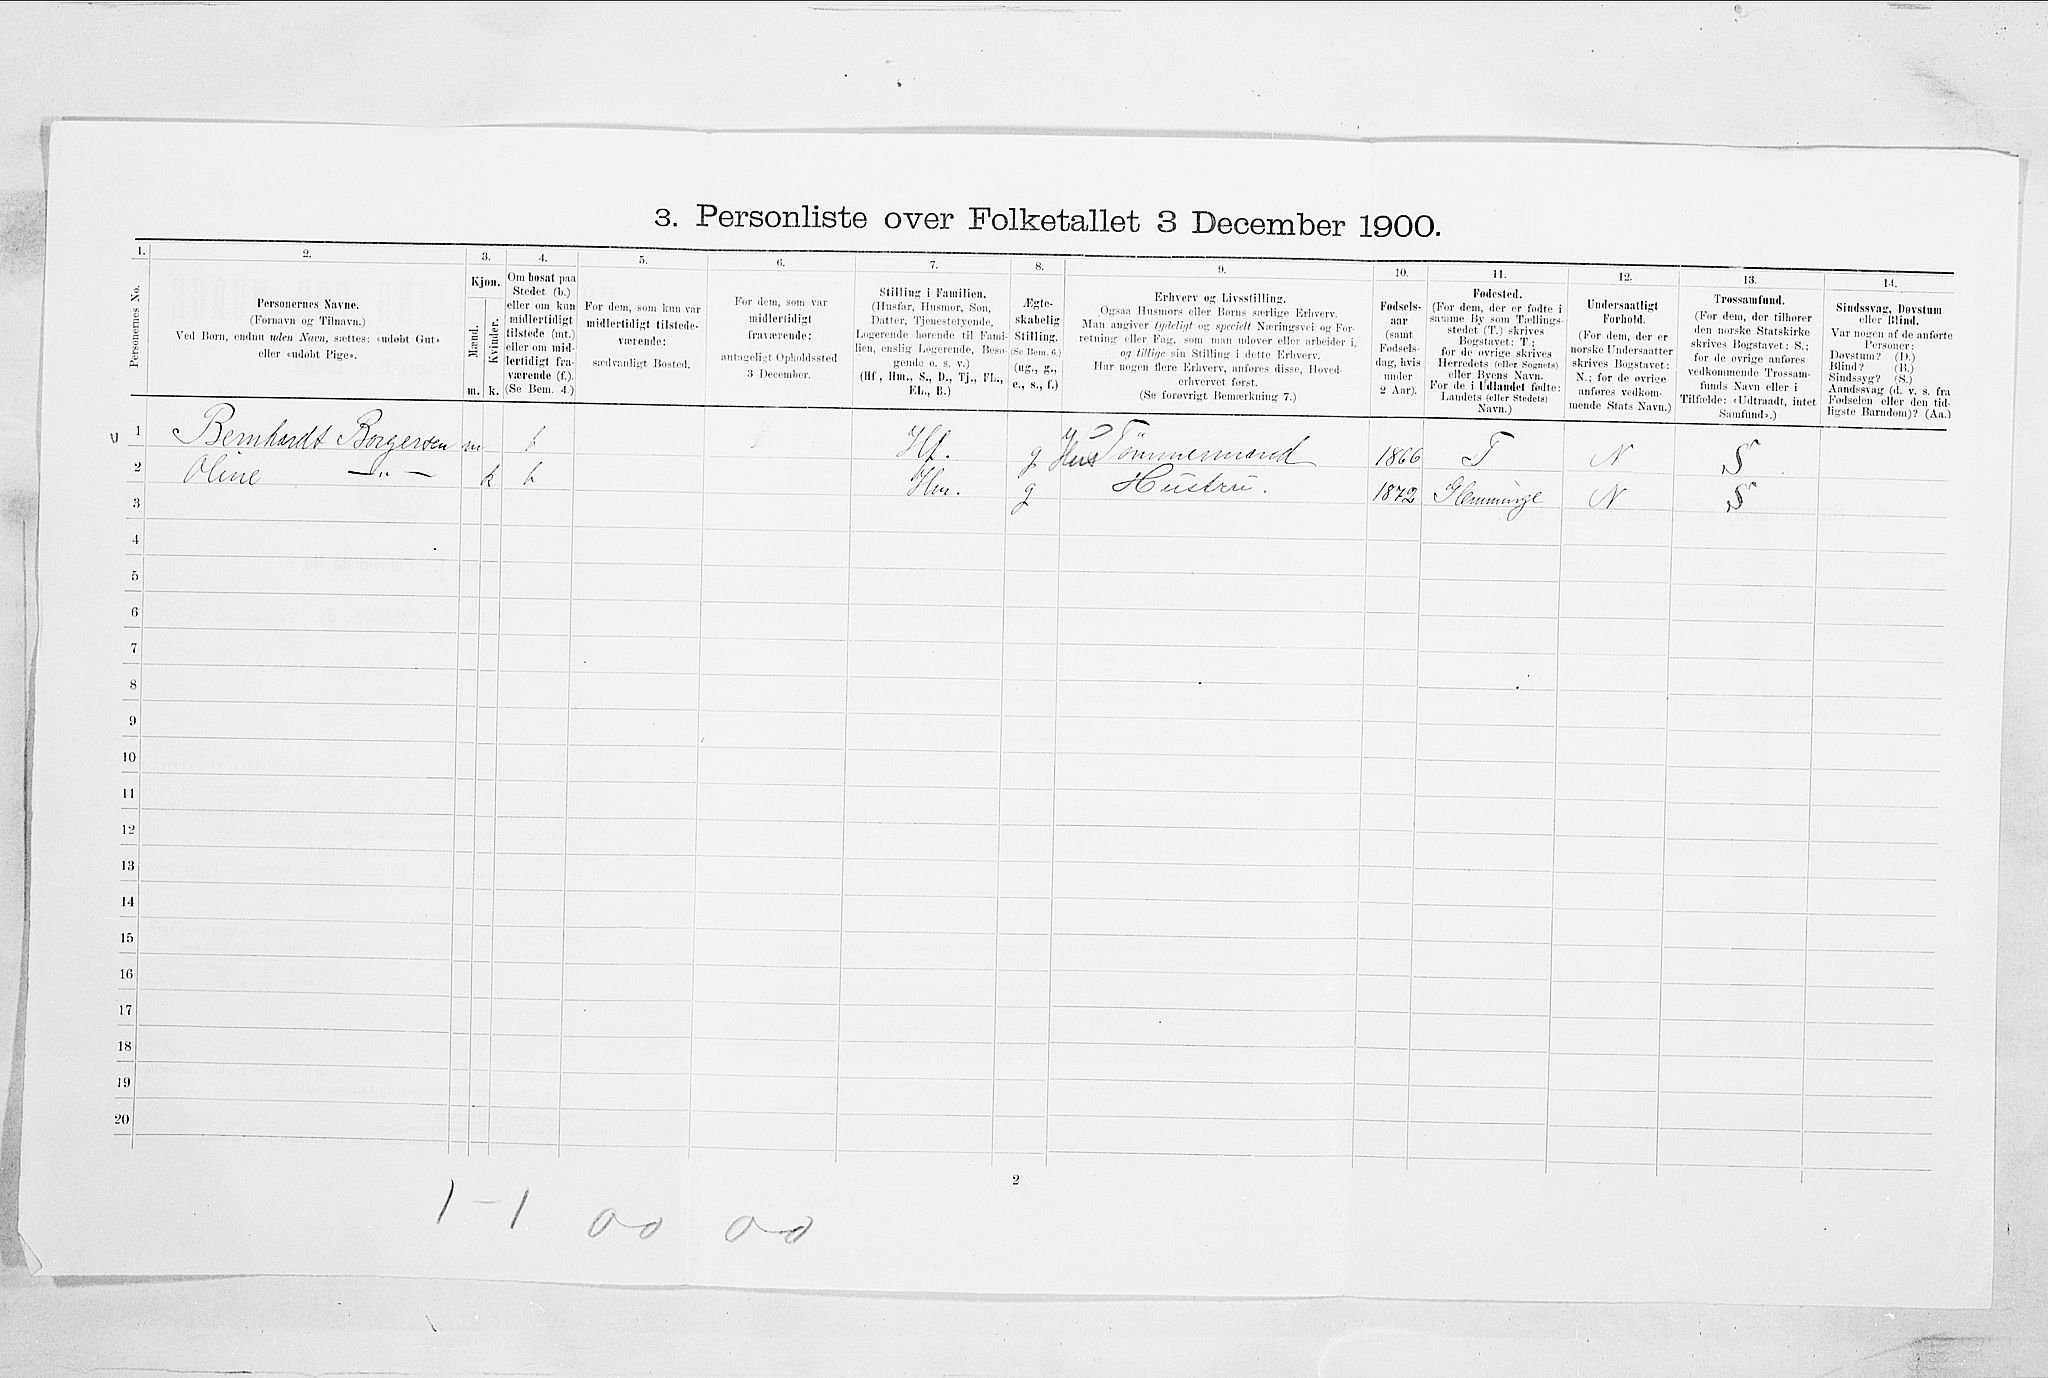 3. Personliste over Folketallet 3 December 1900.
1. 2. 3. 4. 5. 6. 7. 8. 9. 10. 11. 12. 13. 14.
Personernes No.
Personernes Navne.
(Fornavn og Tilnavn.)
Ved Børn, endnu uden Navn, sættes: «udøbt Gut»
eller «udøbt Pige».
Kjøn.
Mænd.
Kvinder.
m. k.
Om bosat paa
Stedet (b.)
eller om kun
midlertidigt
tilstede (mt.)
eller om mid-
lertidigt fra-
værende (f.).
(Se Bem. 4.)
For dem, som kun var
midlertidigt tilstede-
værende:
sædvanligt Bosted.
For dem, som var
midlertidigt
fraværende:
antageligt Opholdssted
3 December.
Stilling i Familien.
(Husfar, Husmor, Søn,
Datter, Tjenestetyende,
Logerende hørende til Fami-
lien, enslig Logerende, Besø-
gende o. s. v.)
(Hf., Hm., S., D., Tj., FL.,
EL., B.)
Ægte-
skabelig
Stilling.
(Se Bem. 6.)
(ug., g.,
e., s., f.)
Erhverv og Livsstilling.
Ogsaa Husmors eller Børns særlige Erhverv.
Man angiver tydeligt og specielt Næringsvei og For-
retning eller Fag, som man udøver eller arbeider i,
og tillige sin Stilling i dette Erhverv.
Har nogen flere Erhverv, anføres disse, Hoved-
erhvervet først.
(Se forøvrigt Bemærkning 7.)
Fødsels-
aar
(samt
Fødsels-
dag, hvis
under
2 Aar).
Fødested.
(For dem, der er fødte i
samme By som Tællings-
stedet (T.) skrives
Bogstavet: T.;
for de øvrige skrives
Herredets (eller Sognets)
eller Byens Navn.
For de i Udlandet fødte:
Landets (eller Stedets)
Navn.)
Undersaatligt
Forhold.
(For dem, der er
norske Undersaatter
skrives Bogstavet:
N.; for de øvrige
anføres vedkom-
mende Stats Navn.)
Trossamfund.
(For dem, der tilhører
den norske Statskirke
skrives Bogstavet: S.;
for de øvrige anføres
vedkommende Trossam-
funds Navn eller i
Tilfælde: «Udtraadt, intet
Samfund».)
Sindssvag, Døvstum
eller Blind.
Var nogen af de anførte
Personer:
Døvstum? (D.)
Blind? (B.)
Sindssyg? (S.)
Aandssvag (d. v. s. fra
Fødselen eller den tid-
ligste Barndom)? (Aa.)
1 Bernhardt Borgersen m b Hf. g Hus Tömmermand 1866 T N S
2 Oline —„— k b Hm. g Hustru. 1872 Glemminge N S
3
4
5
6
7
8
9
10
11
12
13
14
15
16
17
18
19
20
2
1 - 1 00 00